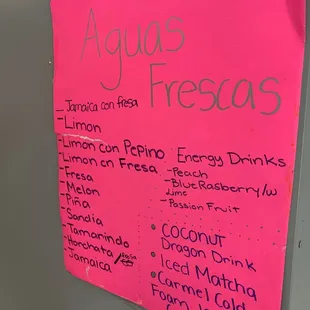 Aguas
Frescas
- Jamaica con fresa
- Limon
- Limon con Pepino
- Limon en Fresa
- Fresa
- Melon
- Piña
- Sandia
- Tamarindo
- Horchata/
- Jamaica
Energy Drinks
- Peach
- Blue Rasberry/w
Lime
- Passion Fruit
• Coconut
Dragon Drink
• Iced Matcha
• Carmel Cold
Foam